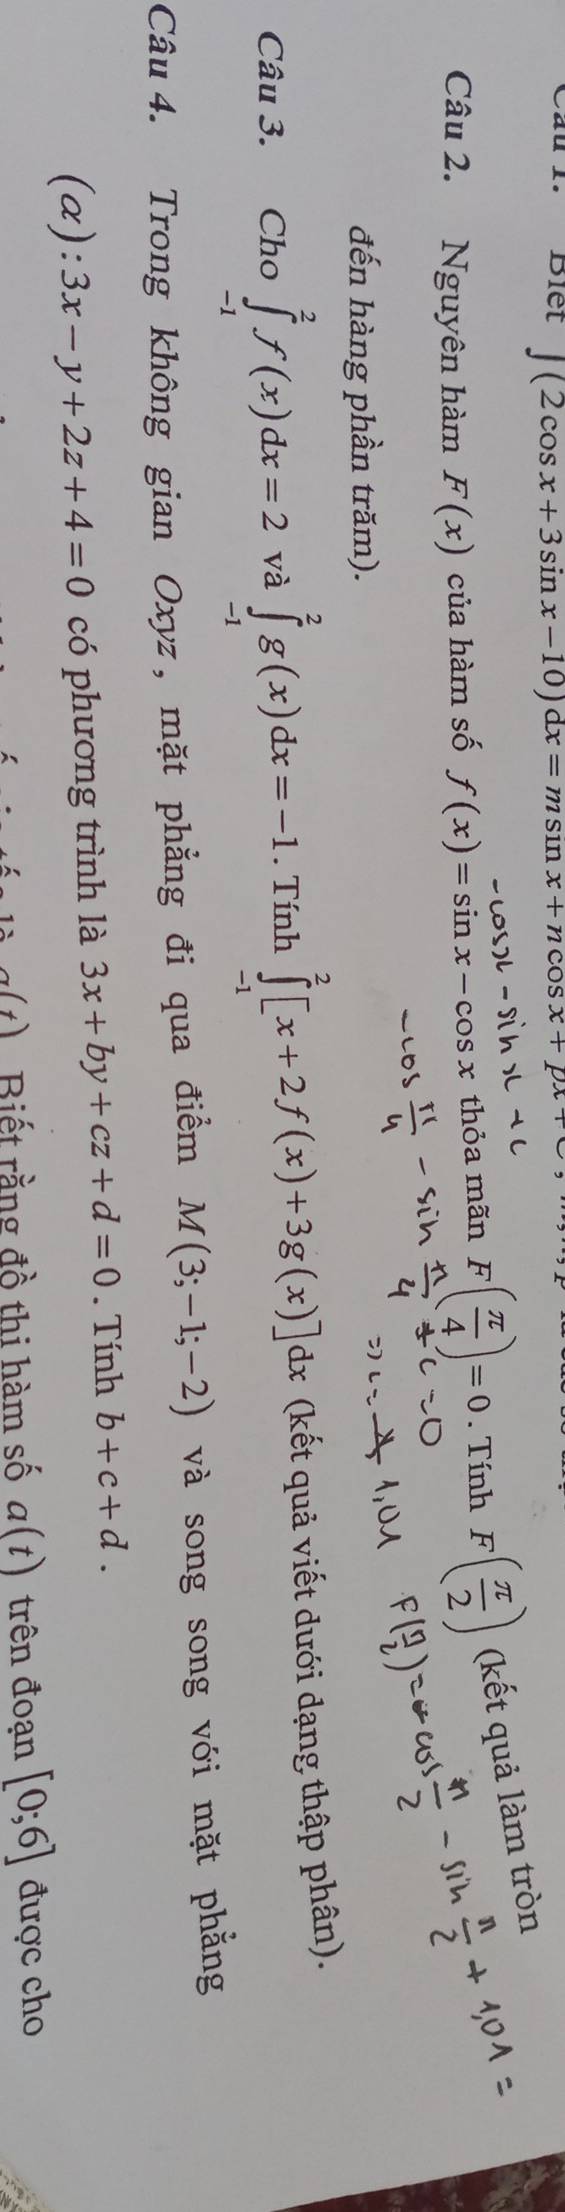 Câu 1. Biết ∫(2cos x + 3sin x − 10)dx = m sin x + n cos x + px + C,
− cos x − sin x + C
Câu 2. Nguyên hàm F(x) của hàm số f(x) = sin x − cos x thỏa mãn F(π/4) = 0. Tính F(π/2) (kết quả làm tròn
− cos π/4 − sin π/4 + C = 0
F(π/2) = cos π/2 − sin π/2 + 1,01 =
1,01
đến hàng phần trăm).
Câu 3. Cho ∫_{-1}^{2} f(x)dx = 2 và ∫_{-1}^{2} g(x)dx = −1. Tính ∫_{-1}^{2} [x + 2f(x) + 3g(x)]dx (kết quả viết dưới dạng thập phân).
Câu 4. Trong không gian Oxyz, mặt phẳng đi qua điểm M(3;−1;−2) và song song với mặt phẳng
(α): 3x − y + 2z + 4 = 0 có phương trình là 3x + by + cz + d = 0. Tính b + c + d.
là a(t). Biết rằng đồ thị hàm số a(t) trên đoạn [0;6] được cho